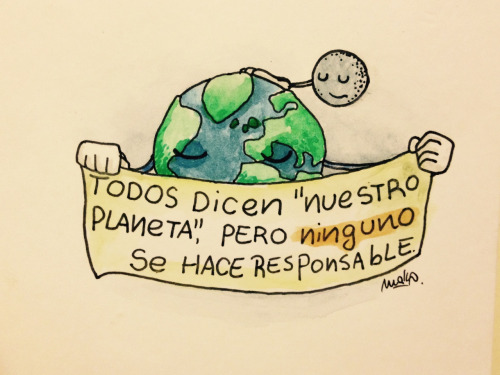 TODOS DICEN "NUESTRO
PLANETA", PERO ninguno
Se HACE RESPONSABLE.